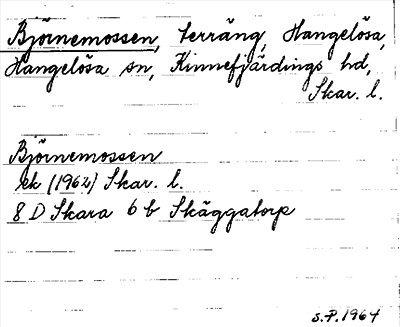 Björnemossen, terräng, Hangelösa,
Hangelösa sn, Kinnefjärdings hd,
Skar. l.
Björnemossen
ek (1962) Skar. l.
8 D Skara 6 b Skäggatorp
S.P. 1964